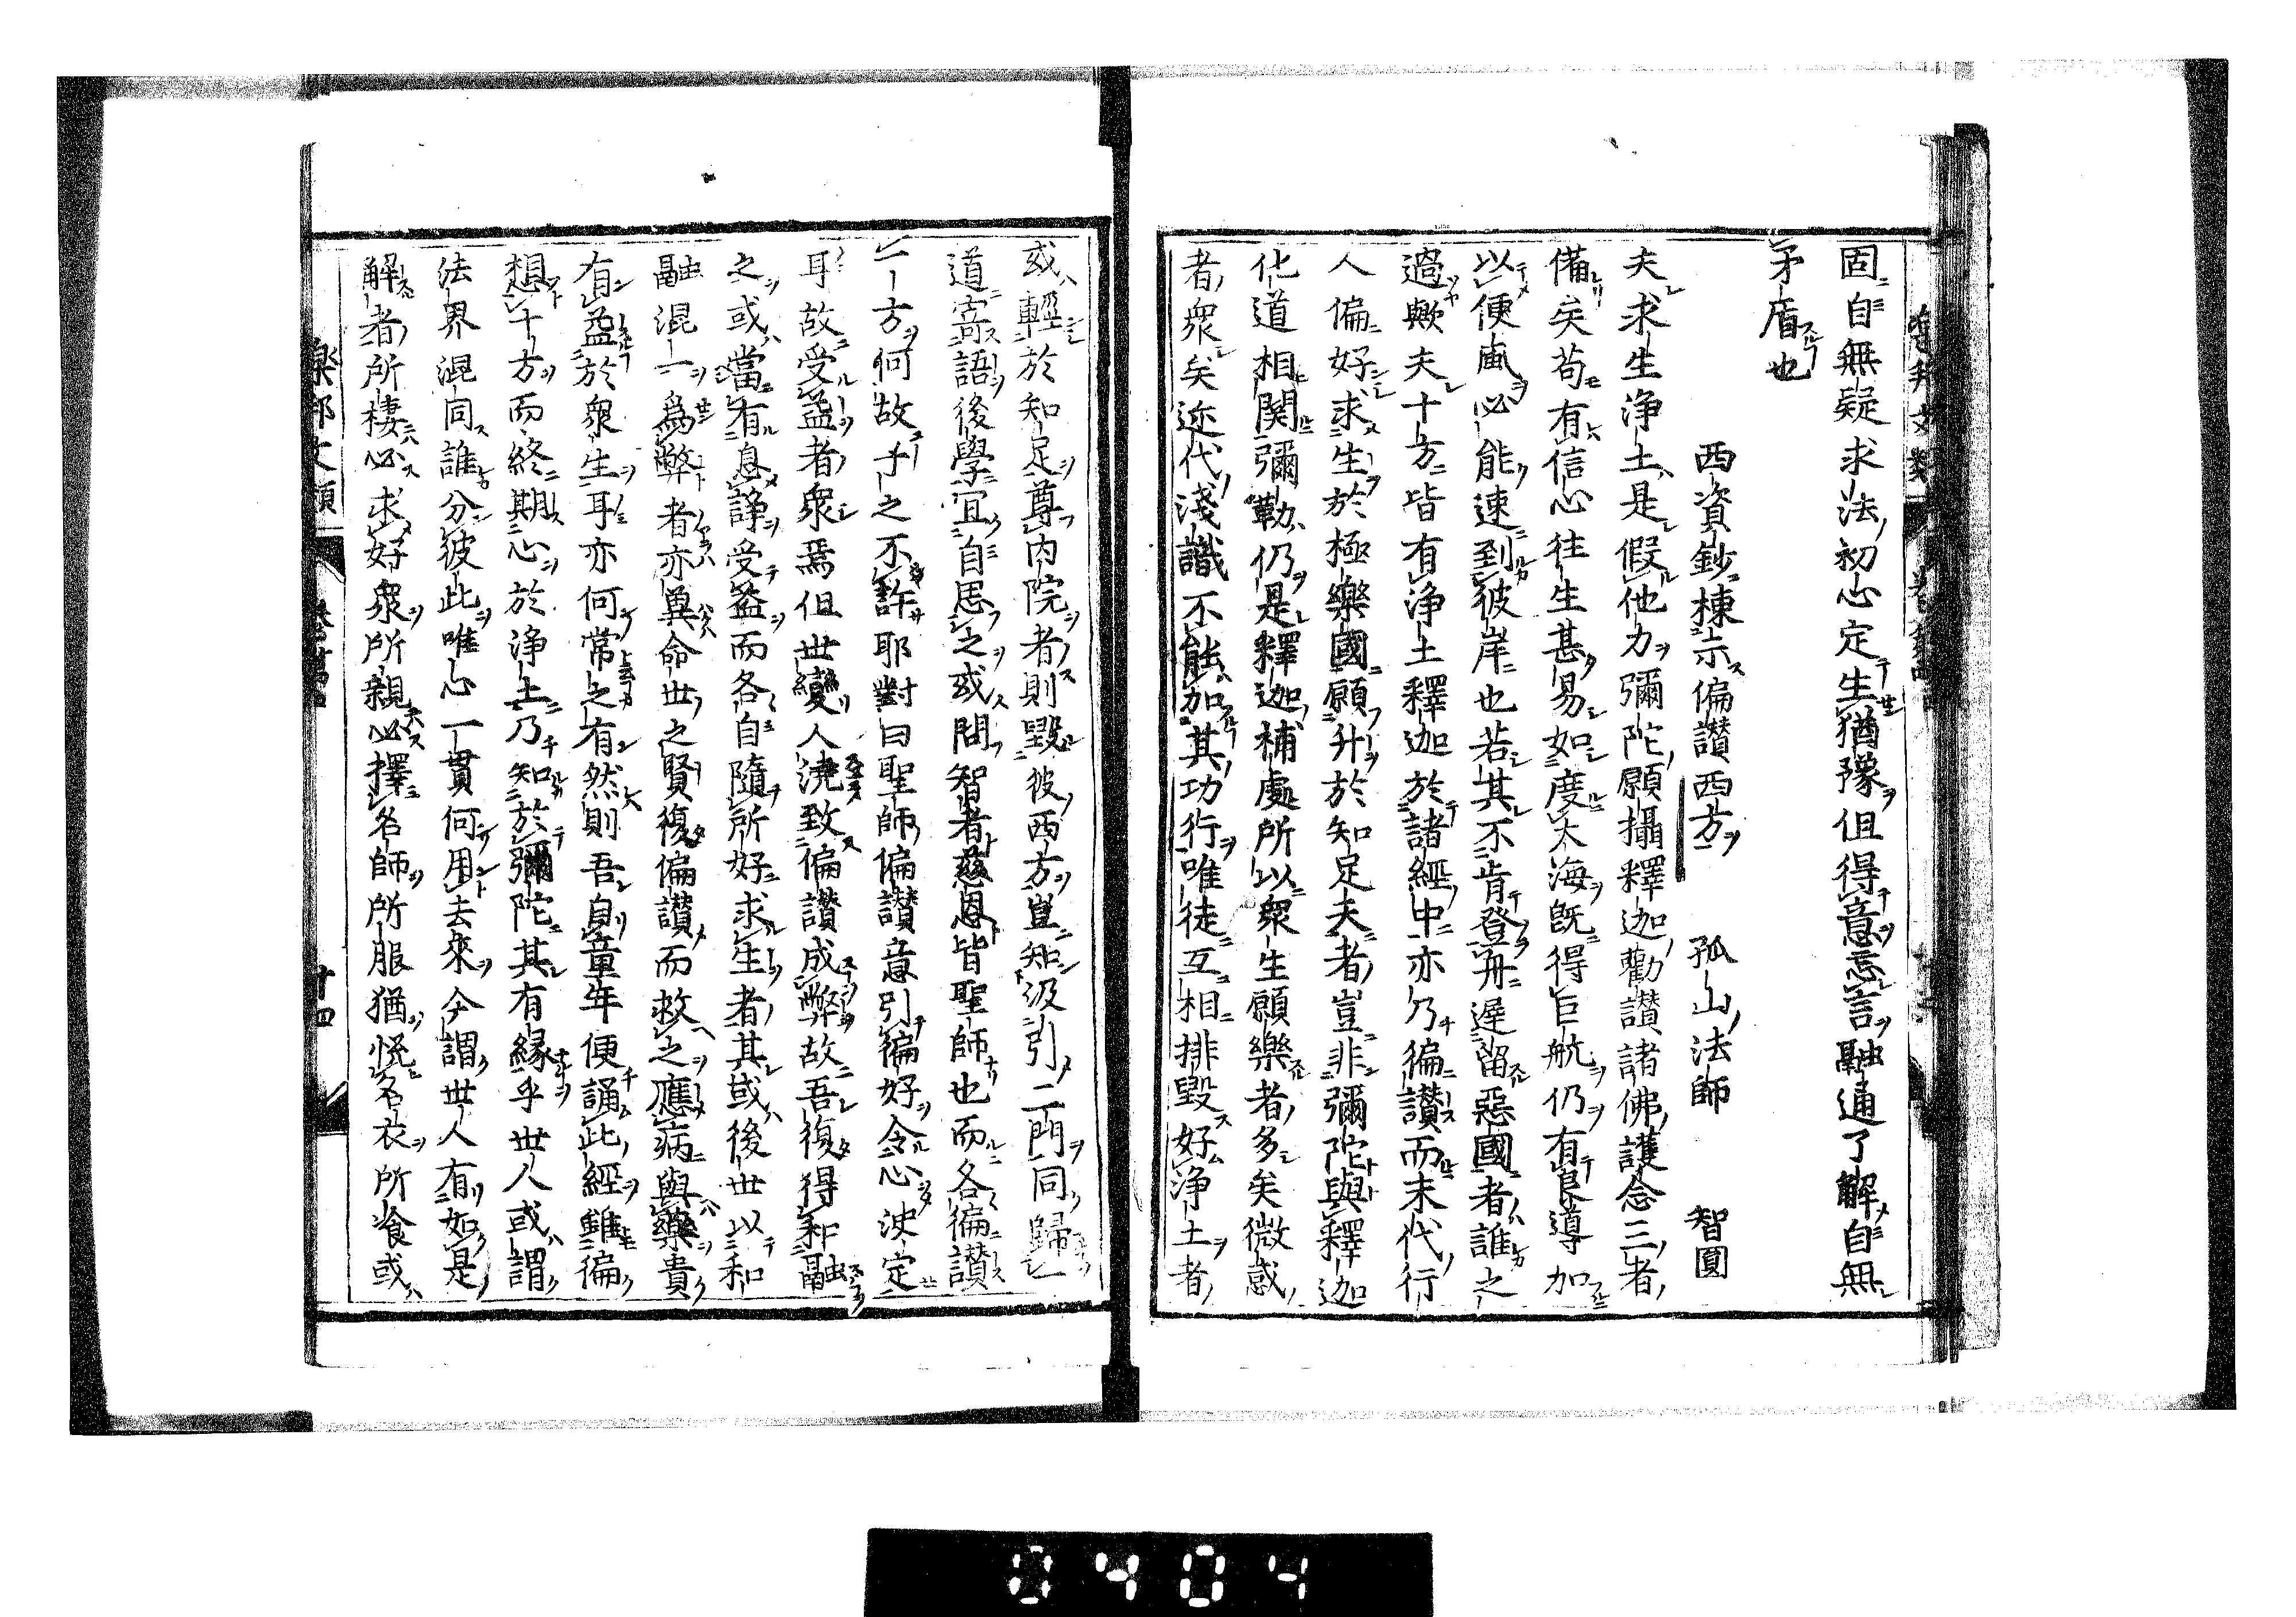 固自無疑求法初心定生猶豫但得意忘言融通了解自無
矛盾也
西資鈔揀示偏讃西方 孤山法師 智圓
夫求生淨土是假他力彌陀願攝釋迦勸讃諸佛護念三者
備矣苟有信心往生甚易如度大海既得巨航仍有良導加
以便風必能速到彼岸也若其不肯登舟遲留惡國者誰之
過歟夫十方皆有淨土釋迦於諸經中亦乃徧讃而末代行
人偏好求生於極樂國願升於知足天者豈非彌陀與釋迦
化道相関彌勒仍是釋迦補處所以衆生願樂者多矣微惑
者衆矣迩代淺識不能加其功行唯徒互相排毀好淨土者
或輕於知足尊内院者則毀彼西方豈知汲引二門同歸一
道寄語後學宜自思之或問智者慈恩皆聖師也而各徧讃
一方何故子之不許耶對曰聖師偏讃意引徧好令心決定
耳故受益者衆焉但世變人澆致偏讃成弊故吾復得和融
之或當有息諍受益而各自隨所好求生者其或後世以和
融混一爲弊者亦冀命世之賢復偏讃而救之應病與藥貴
有益於衆生耳亦何常之有然則吾自童年便誦此經雖徧
想十方而終期心於淨土乃知於彌陀其有縁乎世人或謂
法界混同誰分彼此唯心一貫何用去來今謂世人有如是
解者所棲必求好衆所親必擇名師所服猶悦名衣所飡或
樂邦文類 卷第四 十四